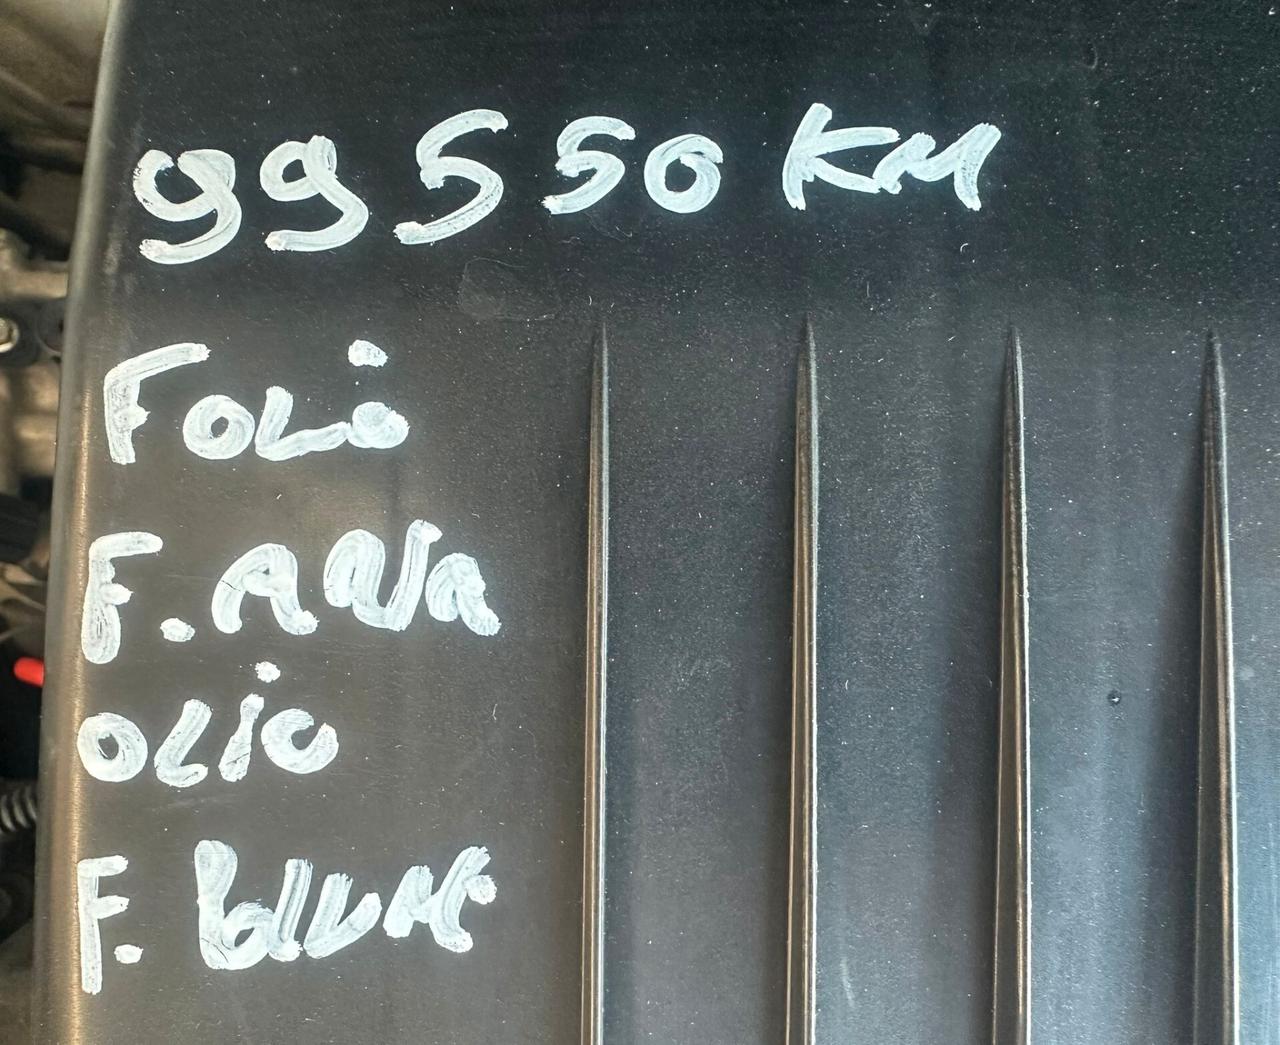 99550 KM
F OLiO
F. ARIA
OLiO
F.